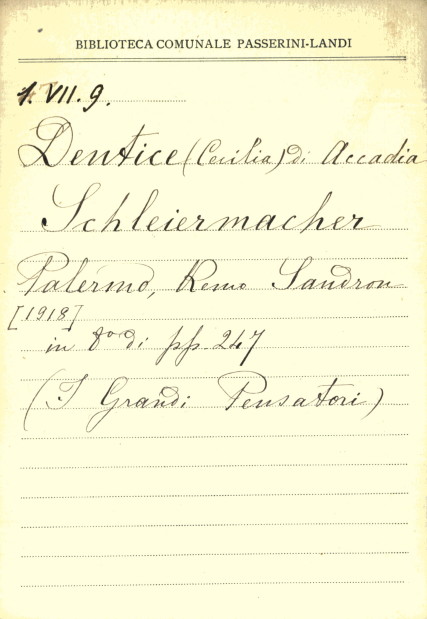 BIBLIOTECA COMUNALE PASSERINI-LANDI
1. VII. 9.
Dentice (Cecilia) di Accadia
Schleiermacher
Palermo, Remo Sandron
[1918]
in 8º di pp. 247
(I Grandi Pensatori)